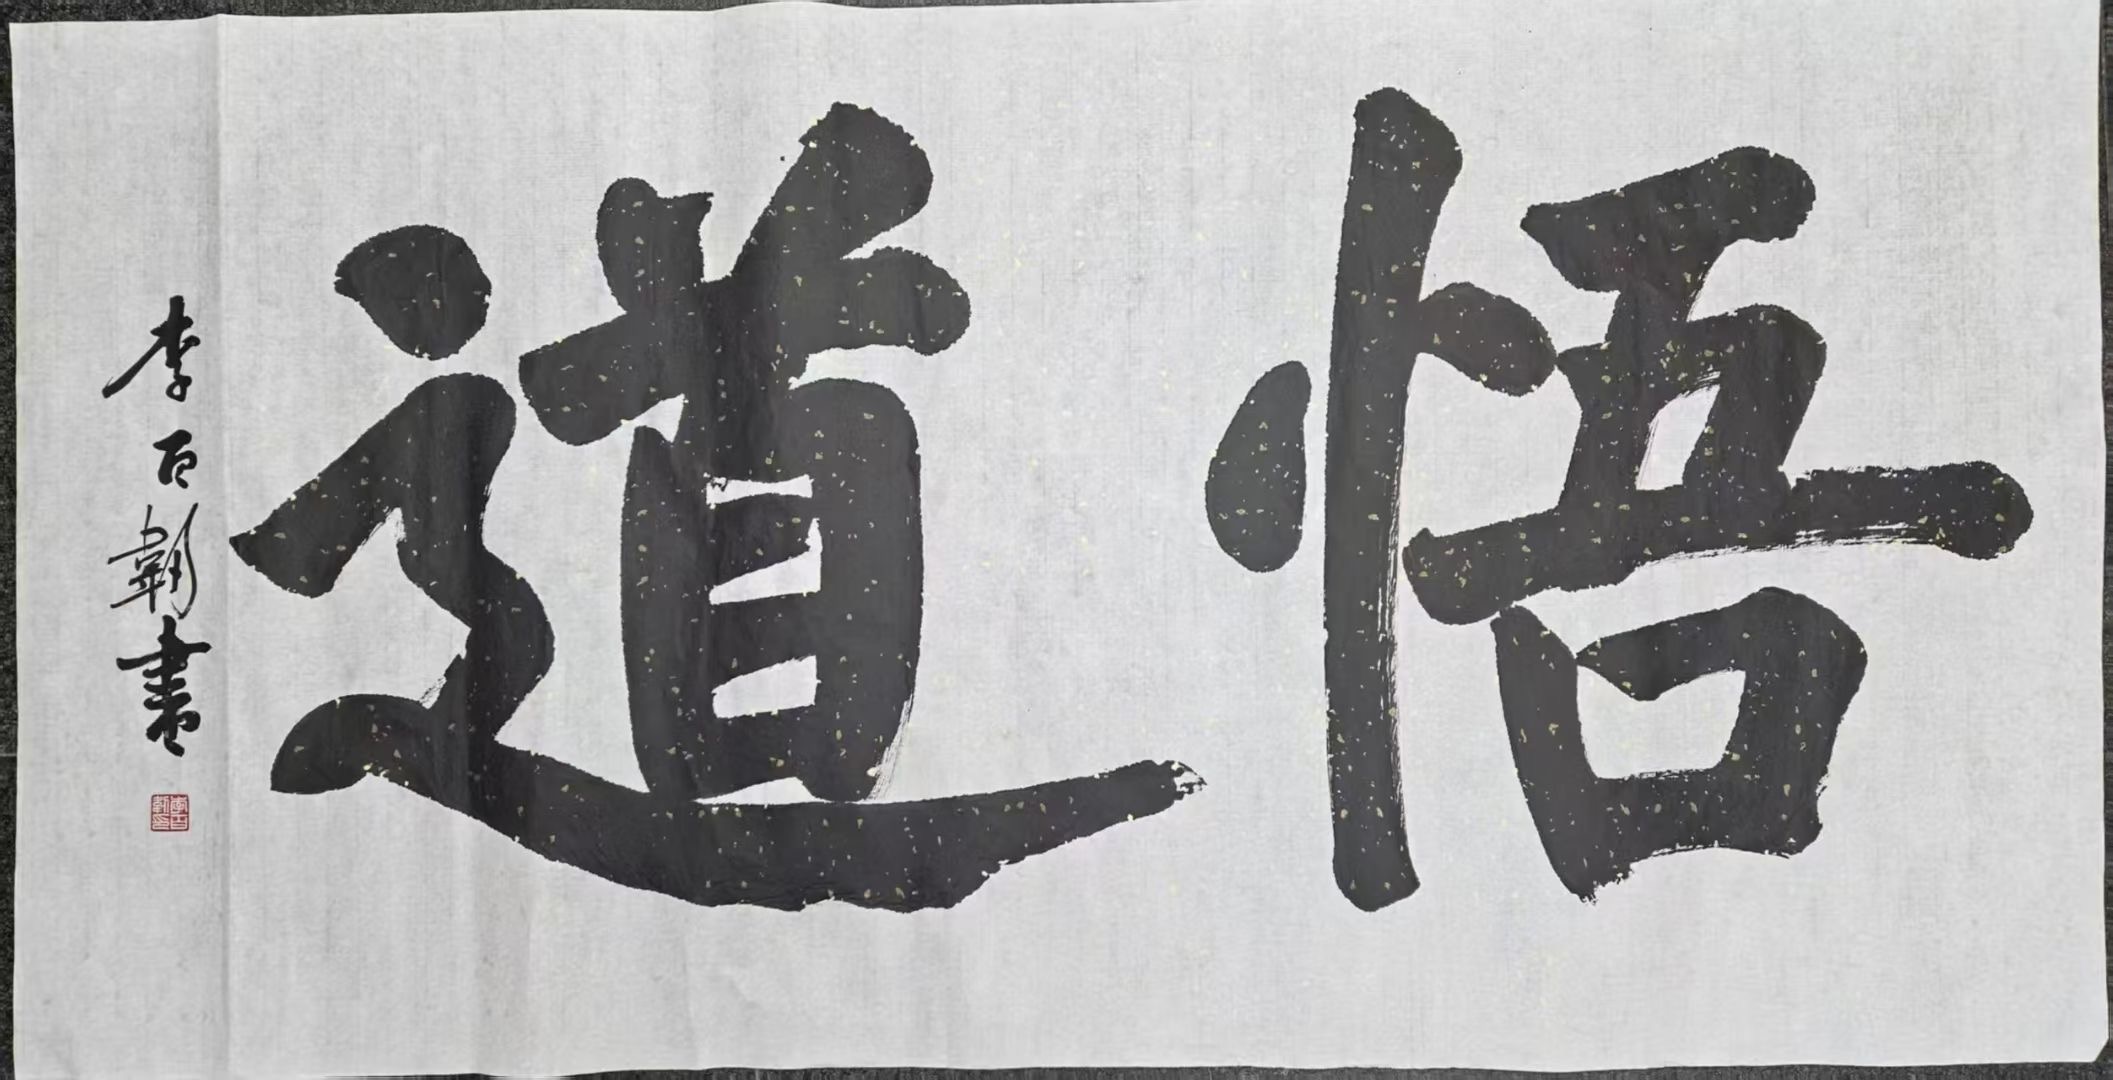 悟道
李百朝書